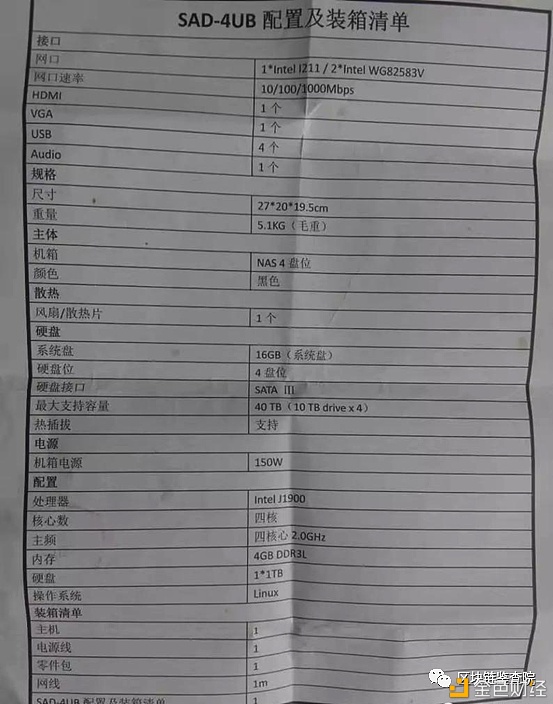 SAD-4UB 配置及装箱清单
接口
网口 1*Intel I211 / 2*Intel WG82583V
网口速率 10/100/1000Mbps
HDMI 1 个
VGA 1 个
USB 4 个
Audio 1 个
规格
尺寸 27*20*19.5cm
重量 5.1KG（毛重）
主体
机箱 NAS 4 盘位
颜色 黑色
散热
风扇/散热片 1 个
硬盘
系统盘 16GB（系统盘）
硬盘位 4 盘位
硬盘接口 SATA Ⅲ
最大支持容量 40 TB（10 TB drive x 4）
热插拔 支持
电源
机箱电源 150W
配置
处理器 Intel J1900
核心数 四核
主频 四核心 2.0GHz
内存 4GB DDR3L
硬盘 1*1TB
操作系统 Linux
装箱清单
主机 1
电源线 1
零件包 1
网线 1m
SAD-4UB 配置及装箱清单 1
区块链监查院
金色财经